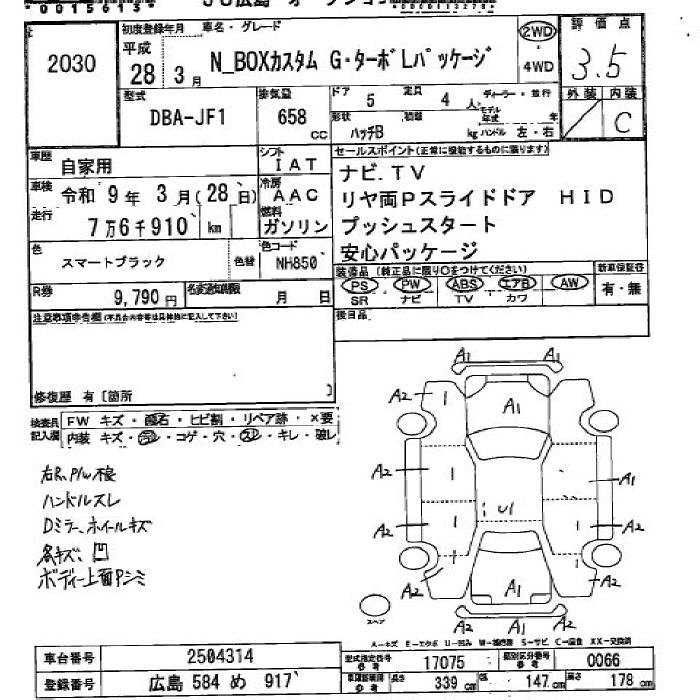 00156159
JU広島 オークション
2030
初度登録年月 車名・グレード
平成 28年 3月
N_BOXカスタム G・ターボLパッケージ
2WD
4WD
評価点
3.5
型式
DBA-JF1
排気量
658 cc
ドア 5 定員 4 人
形状 ハッチB 積載 kg
ディーラー・並行
モデル年式 年
ハンドル 左・右
外装 内装
C
車歴 自家用
シフト IAT
車検 令和 9年 3月(28日)
冷房 AAC
走行 7万6千910 km
燃料 ガソリン
色 スマートブラック
色替
色コード NH850
R券 9,790円
名変期限 月 日
セールスポイント(正常に機能するものに限ります)
ナビ.TV
リヤ両Pスライドドア HID
プッシュスタート
安心パッケージ
装備品(純正品に限り○をつけてください)
新車保証書
PS PW ABS エアB AW
有・無
SR ナビ TV カワ
後日品
注意事項申告欄(不具合内容等は具体的に記入して下さい)
修復歴 有〔箇所 〕
検査員記入欄
FW キズ・飛石・ヒビ割・リペア跡・X要
内装 キズ・ヨゴレ・コゲ・穴・スレ・キレ・破レ
右R.P/W不良
ハンドルスレ
Dミラー、ホイールキズ
各キズ、凹
ボディー上面Pシミ
A1 A1
A2 A1 A1
A2 A1
U1
A2 A2
A2 A1 A2
A2 A2
スペア
A-キズ E-エクボ U-凹み W-補修跡 S-サビ C-腐食 XX-交換済
車台番号 2504314
登録番号 広島 584 め 917
型式指定番号 参考 17075
類別区分番号 参考 0066
車両諸元 参考 長さ 339 cm 幅 147 cm 高さ 178 cm